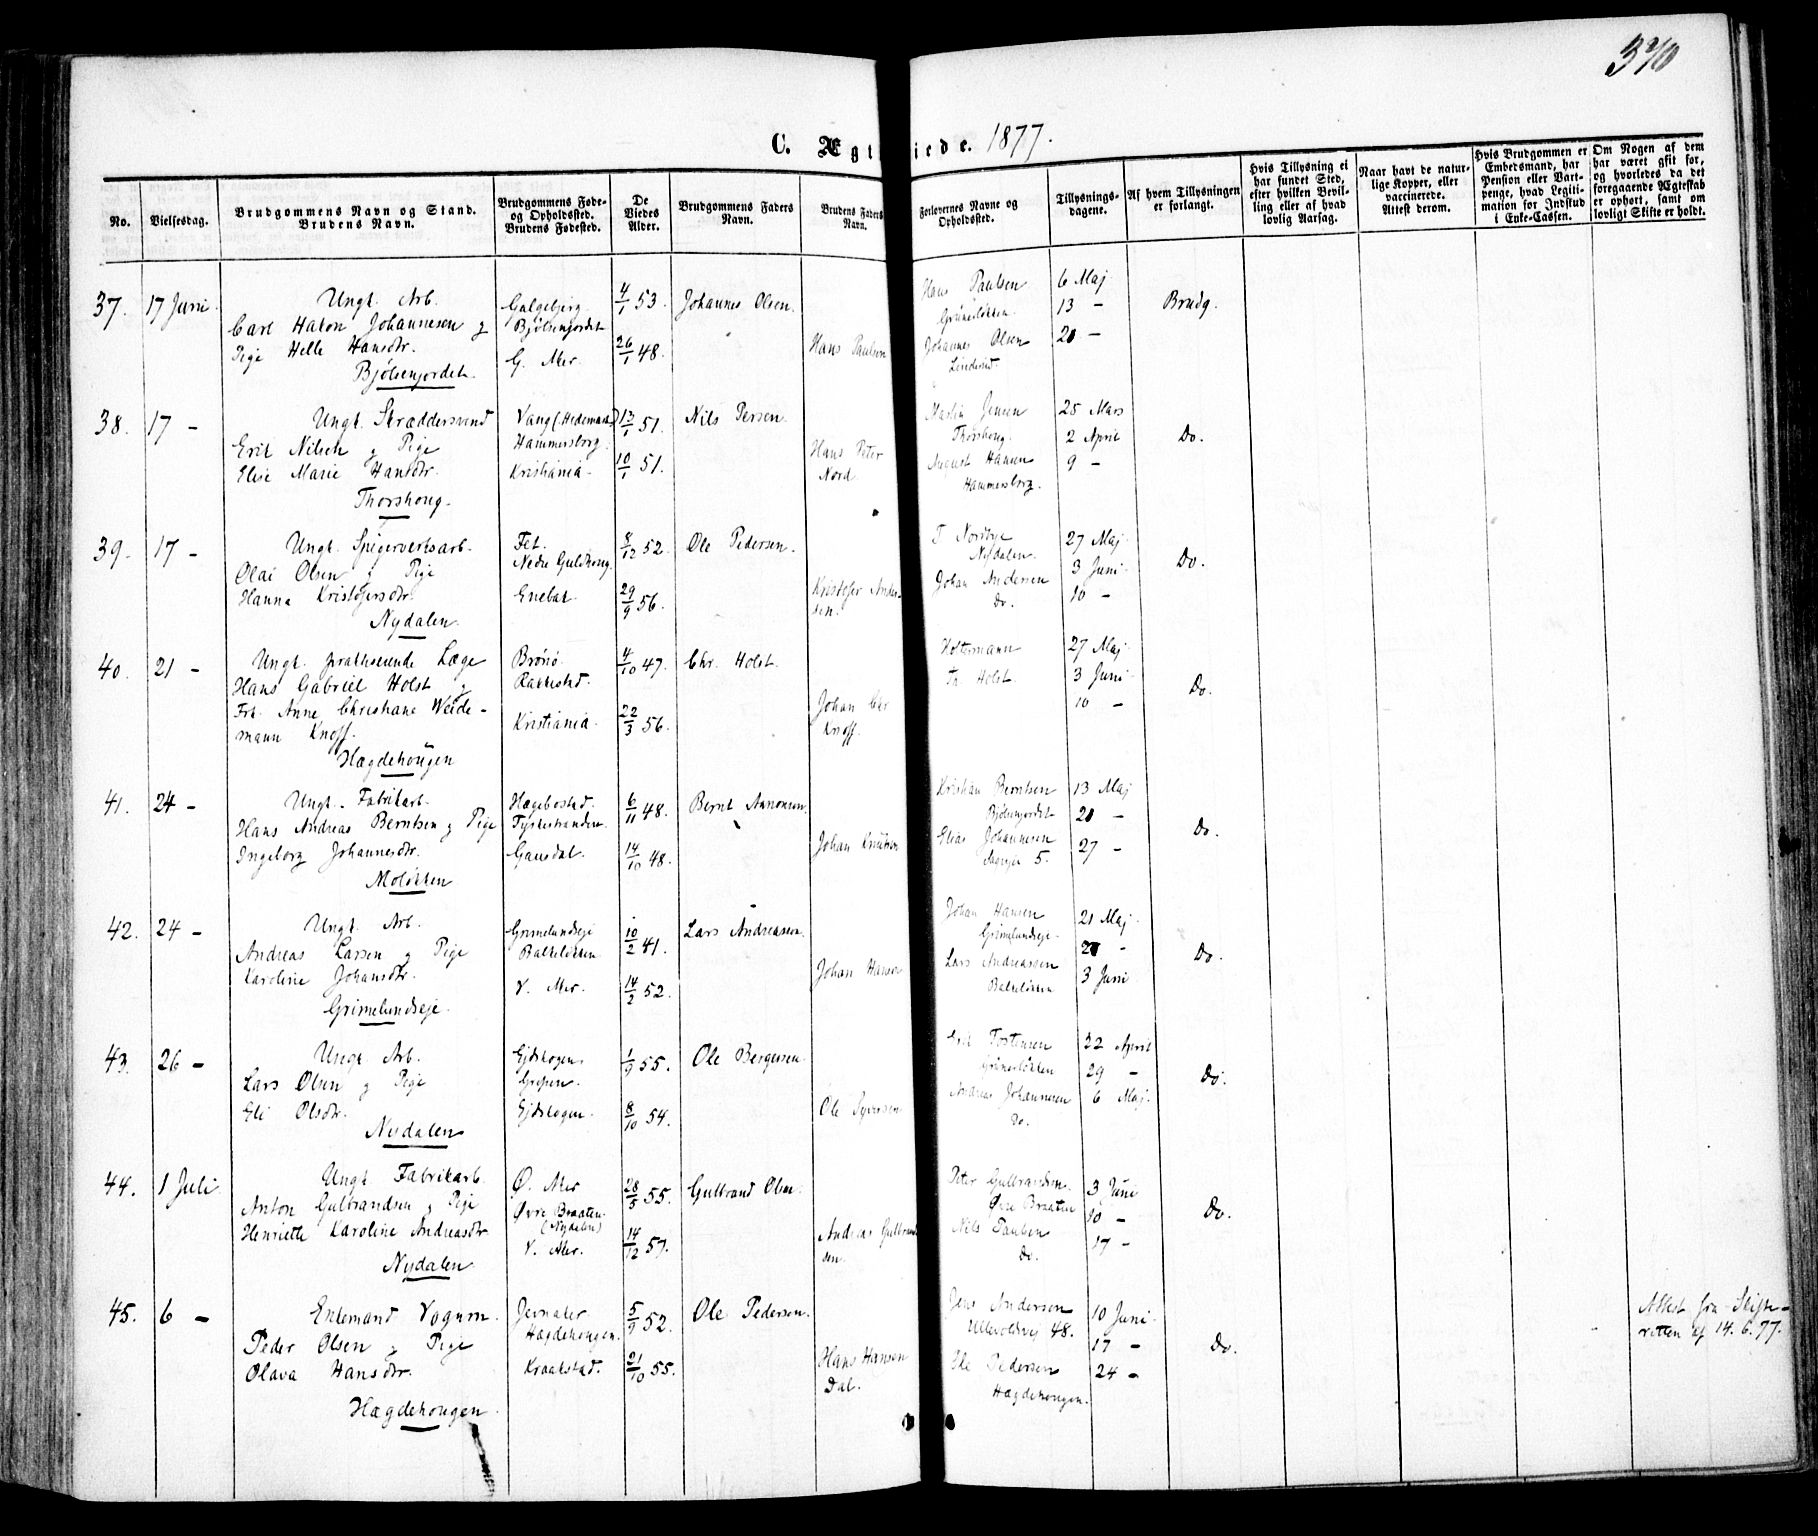 370
C. Ægt viede. 1877.
No.
Vielsesdag.
Brudgommens Navn og Stand.
Brudens Navn.
Brudgommens Føde-
og Opholdssted.
Brudens Fødested.
De
Viedes
Alder.
Brudgommens Faders
Navn.
Brudens Faders
Navn.
Forlovernes Navne og
Opholdsted.
Tillysnings-
dagene.
Af hvem Tillysningen
er forlangt.
Hvis Tillysning ei
har fundet Sted,
efter hvilken Bevil-
ling eller af hvad
lovlig Aarsag.
Naar havt de natur-
lige Kopper, eller
vaccinerede.
Attest derom.
Hvis Brudgommen er
Embedsmand, har
Pension eller Vart-
penge, hvad Legiti-
mation for Indskud
i Enke-Cassen.
Om Nogen af dem
har været gift før,
og hvorledes da det
foregaaende Ægteskab
er ophørt, samt om
lovligt Skifte er holdt.
37. 17 Juni.
Ungk. Arb.
Carl Hakon Johannesen og
Pige Helle Hansdtr.
Bjølsenjordet.
Galgebjerg.
Bjølsenjordet
G. Aker.
4/1 53.
26/1 48.
Johannes Olsen.
Hans Paulsen
Hans Paulsen
Grünerløkken.
Johannes Olsen
6 Maj
13 -
20 -
Brudg.
38. 17 -
Ungk. Skræddersvend
Erik Nilsen og Pige
Elise Marie Hansdtr.
Thorshoug.
Vang (Hedemark)
Hammersborg.
Kristiania.
13/1 51.
10/1 51.
Nils Persen.
Hans Peter
Nord
Martin Jensen
Thorshoug.
August Hansen
Hammersborg.
25 Mars
2 April
9 -
Do.
39. 17 -
Ungk. Spigerverksarb.
Olai Olsen og Pige
Hanna Kristofersdtr.
Nydalen.
Fet.
Nedre Guldhoug.
Enebak.
8/12 52.
29/9 56.
Ole Pedersen.
Kristofer Ander-
sen.
T Nordbye
Nydalen.
Johan Andersen
Do.
27 Maj.
3 Juni
10 -
Do.
40. 21 -
Ungk. praktiserende Læge
Hans Gabriel Holst og
Frk. Anne Christiane Weide-
mann Knoff.
Hægdehougen
Brønø.
Rakkestad.
Kristiania.
4/10 47.
22/3 56.
Chr. Holst.
Johan Chr
Knoff.
Holtermann
Holst
27 Maj.
3 Juni
10 -
Do.
41. 24 -
Ungk. Fabrikarb.
Hans Andreas Berntsen og Pige
Ingeborg Johannesdtr.
Moløkken
Hægebostad.
Tyskestranden.
Gausdal.
6/11 48.
14/10 48.
Bernt Aanonsen
Johan Knutsen
Kristian Berntsen
Bjølsenjordet
Elias Johannesen
5.
13 Maj
20 -
27 -
Do.
42. 24 -
Ungk. Arb.
Andreas Larsen og Pige
Karoline Johansdtr.
Grimelundseje.
Grimelundseje
Bakkeløkken
V. Aker.
10/2 41.
14/2 52.
Lars Andreassen.
Johan Hansen
Johan Hansen
Grimelundseje.
Lars Andreassen
Bakkeløkken
21 Maj.
27 -
3 Juni
Do.
43. 26 -
Ungk. Arb.
Lars Olsen og Pige
Eli Olsdtr.
Nydalen
Ejdskogen
Grefsen.
Ejdskogen.
1/9 55.
8/10 54.
Ole Bergersen.
Ole Syversen
Erik Tostensen
Grünerløkken
Andreas Johannesen
Do.
22 April
29 -
6 Maj.
Do.
44. 1 Juli
Ungk Fabrikarb.
Anton Gulbrandsen og Pige
Henriette Karoline Andreasdtr.
Nydalen
Ø. Aker
Øvre Braaten
(Nydalen)
V. Aker.
28/5 55.
14/12 57.
Gulbrand Olsen
Andreas Gulbrand-
sen.
Peter Gulbrandsen.
Øvre Braaten
Nils Paulsen
Do.
3 Juni
10 -
17 -
Do.
45. 6 -
Enkemand Vognm.
Peder Olsen og Pige
Olava Hansdtr.
Hægdehougen.
Jevnaker
Hægdehougen.
Kraakstad.
5/9 52.
21/10 55.
Ole Pedersen.
Hans Hansen
Dal.
Jens Andersen
Ullevoldsvej 48.
Ole Pedersen
Hægdehougen.
10 Juni.
17 -
24 -
Do.
Attest fra Skifte-
retten af 14.6.77.